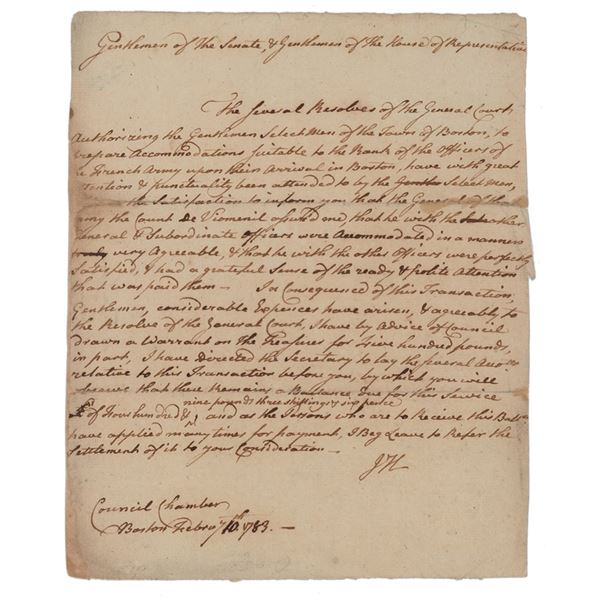 Gentlemen of the Senate, & Gentlemen of the House of Representative
The several Resolves of the General Court
Authorizing the Gentlemen Select Men of the Town of Boston, to
repare Accommodations suitable to the Rank of the Officers of
e French Army upon their Arrival in Boston, have with great
tention & Punctuality been attended to by the Select Men,
the Satisfaction to inform you that the General of that
rmy the Count De Viomenil assured me, that he with the other
General & Subordinate Officers were Accommodated in a manner
truly very Agreeable, & that he with the other Officers were perfectly
Satisfied, & had a grateful Sense of the ready & polite Attention
that was paid them — In Consequence of this Transaction
Gentlemen, considerable Expences have arisen, & agreeably to
the Resolve of the General Court, I have by Advice of Council
drawn a Warrant on the Treasurer for five hundred pounds,
in part, I have Directed the Secretary to lay the several Accotts
relative to this Transaction before you, by which you will
observe that there Remains a Ballance due for this Service
nine pounds three shillings & six pence
of Four hundred &, and as the Persons who are to Receive this Ballce
have applied many times for payment, I Beg Leave to Refer the
Settlement of it to your Consideration —
JH
Council Chamber
Boston Febray 10th 1783. —